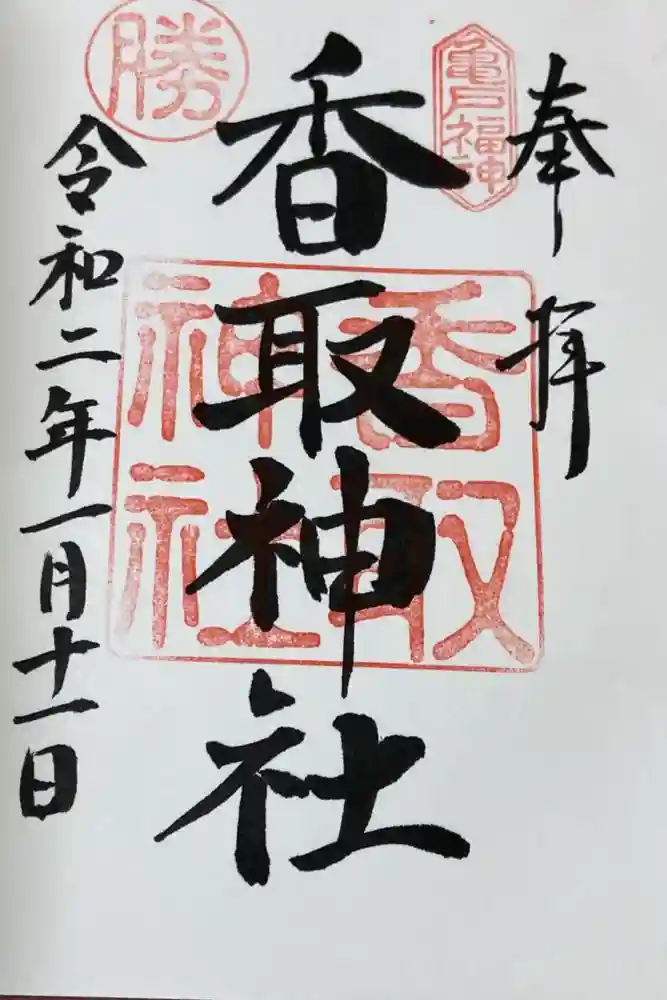 奉拝
亀戸福神
香取神社
香取神社
勝
令和二年一月十一日